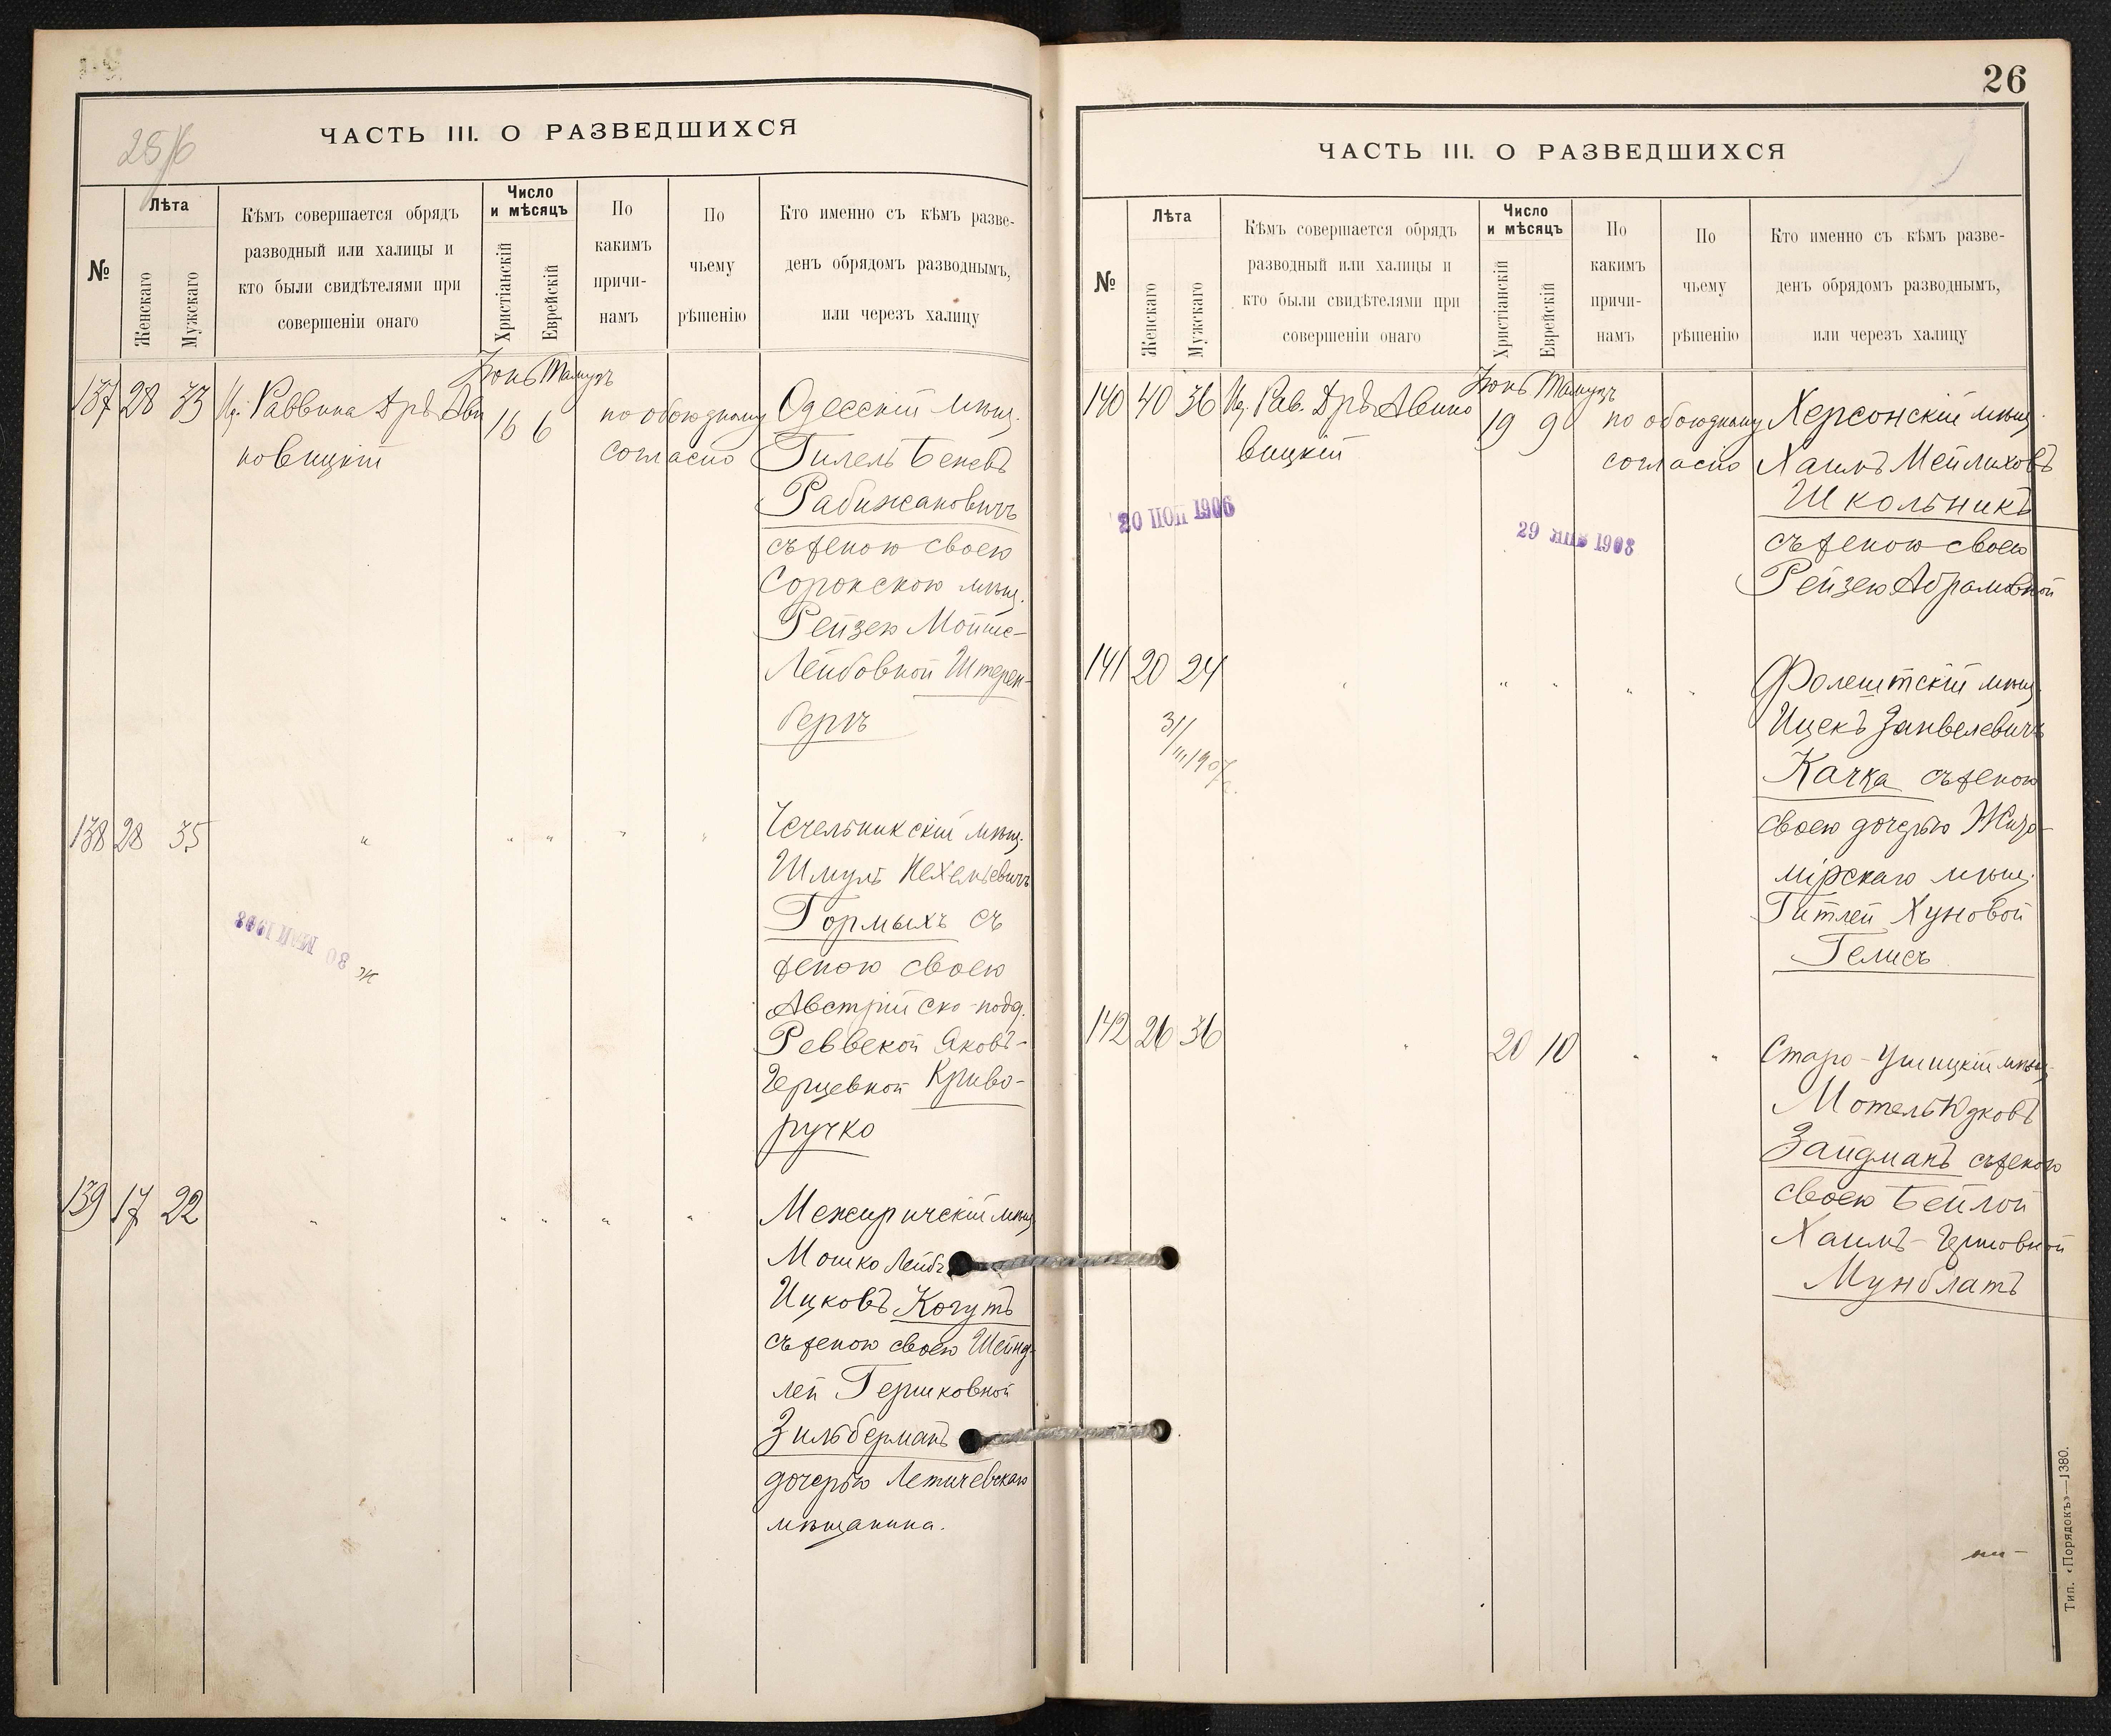 25/6
ЧАСТЬ III. О РАЗВЕДШИХСЯ
№
Лѣта
Женскаго
Мужскаго
Кѣмъ совершается обрядъ
разводный или халицы и
кто были свидѣтелями при
совершеніи онаго
Число
и мѣсяцъ
Христіанскій
Еврейскій
По
какимъ
причи-
намъ
По
чьему
рѣшенію
Кто именно съ кѣмъ разве-
денъ обрядомъ разводнымъ,
или черезъ халицу
Іюнь Тамузъ
137 28 33 Раввина Д-ръ Ави
новицкій
16 6
по обоюдному
согласію
Одесскій мѣщ.
Гилель Беневъ
Рабижановичъ
съ женою своею
Сорокскою мѣщ.
Рейзею Мойше-
Лейбовной Штерен-
бергъ
138 28 35 " " " " "
Чечельникскій мѣщ.
Шмуль Нехемьевичъ
Гормыхъ съ
женою своею
Австрійско-подд.
Реввекой Яковъ-
Герцевной Криво-
ручко
30 МАЯ 1908
139 17 22 " " " " "
Межиричскій мѣщ.
Мошко Лейбъ
Ицковъ Когутъ
съ женою своею Шейнд-
лей Гершковной
Зильберманъ
дочерью Летичевскаго
мѣщанина.
26
ЧАСТЬ III. О РАЗВЕДШИХСЯ
№
Лѣта
Женскаго
Мужскаго
Кѣмъ совершается обрядъ
разводный или халицы и
кто были свидѣтелями при
совершеніи онаго
Число
и мѣсяцъ
Христіанскій
Еврейскій
По
какимъ
причи-
намъ
По
чьему
рѣшенію
Кто именно съ кѣмъ разве-
денъ обрядомъ разводнымъ,
или черезъ халицу
Іюнь Тамузъ
140 40 36 Рав. Д-ръ Авино
вицкій
19 9
по обоюдному
согласію
Херсонскій мѣщ.
Хаимъ Мейлиховъ
Школьникъ
съ женою своею
Рейзею Абрамовной
20 1906
29 1908
141 20 24 " " " " "
31/III 1907 г.
Фолештскій мѣщ.
Ицекъ Занвелевичъ
Качка съ женою
своею дочерью Жито-
мірскаго мѣщ.
Гитлей Хуновой
Гелисъ
142 26 36 " 20 10 " "
Старо-Ушицкій мѣщ.
Мотель Юдковъ
Зайдманъ съ женою
своею Бейлой
Хаимъ-Гершовной
Мунблатъ
Тип. «Порядокъ»—1380.